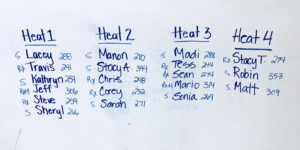 Heat 1
S Lacey 283
Rx Travis 291
S Kathryn 259
Rx Jeff 306
Rx Steve 259
S Sheryl 266
Heat 2
S Manon 270
S Stacy A 344
Rx Chris 248
Rx Corey 232
S Sarah 271
Heat 3
S Madi 288
Rx Tess 244
Rx Sean 274
Rx Mario 314
S Sonia 269
Heat 4
Rx Stacy T. 274
S Robin 353
S Matt 309